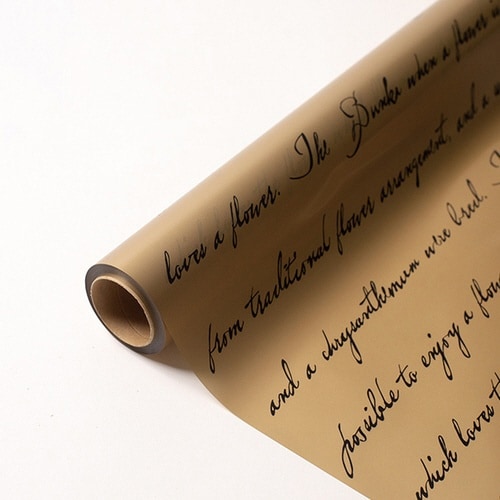 loves a flower. The Bunka when a flower
from traditional flower arrangement, and a
and a chrysanthemum wire bred.
possible to enjoy a
which loves